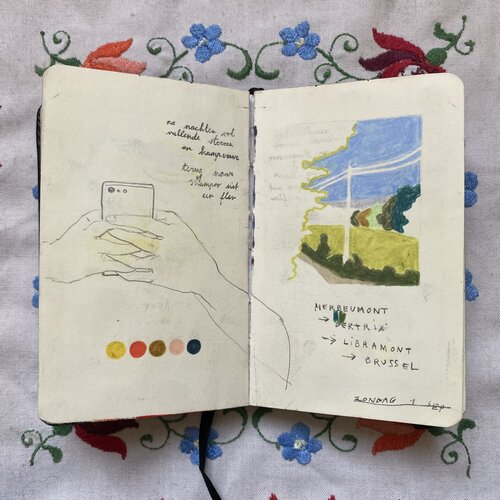 na nachten vol
vallende sterren
en kampvuur
terug naar
shampoo uit
een fles
HERBEUMONT
→ BERTRIX
→ LIBRAMONT
→ BRUSSEL
ZONDAG 1